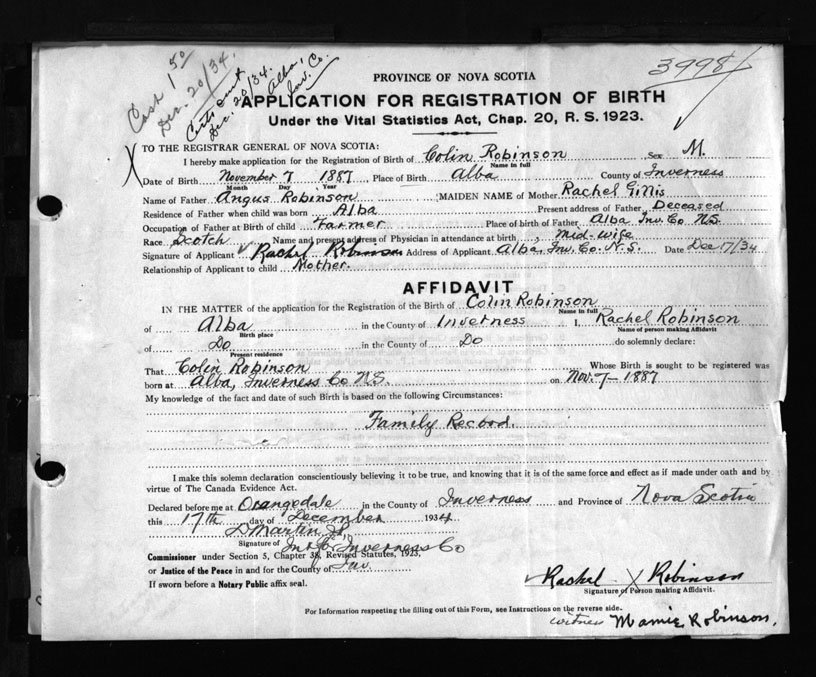 Cash 1 50
Dec. 20/34.
Cert sent
Dec. 20/34.
Alba,
Inv. Co.
3998
PROVINCE OF NOVA SCOTIA
APPLICATION FOR REGISTRATION OF BIRTH
Under the Vital Statistics Act, Chap. 20, R. S. 1923.
TO THE REGISTRAR GENERAL OF NOVA SCOTIA:
I hereby make application for the Registration of Birth of Colin Robinson Sex M.
Name in full
Date of Birth November 7 1887 Place of Birth Alba County of Inverness
Month Day Year
Name of Father Angus Robinson MAIDEN NAME of Mother Rachel Gillis
Residence of Father when child was born Alba Present address of Father Deceased
Occupation of Father at Birth of child Farmer Place of birth of Father Alba Inv. Co N.S.
Race Scotch Name and present address of Physician in attendance at birth Mid-wife
Signature of Applicant Rachel Robinson Address of Applicant Alba, Inv. Co. N.S. Date Dec 17/34
Relationship of Applicant to child Mother.
AFFIDAVIT
IN THE MATTER of the application for the Registration of the Birth of Colin Robinson
Name in full
of Alba in the County of Inverness I, Rachel Robinson
Birth place Name of person making Affidavit
of Do in the County of Do do solemnly declare:
Present residence
That Colin Robinson Whose Birth is sought to be registered was
born at Alba, Inverness Co N.S. on Nov. 7 - 1887
My knowledge of the fact and date of such Birth is based on the following Circumstances:
Family Record.
I make this solemn declaration conscientiously believing it to be true, and knowing that it is of the same force and effect as if made under oath and by
virtue of The Canada Evidence Act.
Declared before me at Orangedale in the County of Inverness and Province of Nova Scotia
this 17th day of December 1934
D Martin Jp,
Signature of In & for Inverness Co
Commissioner under Section 5, Chapter 38, Revised Statutes, 1923,
or Justice of the Peace in and for the County of Inv.
If sworn before a Notary Public affix seal.
Rachel X Robinson
Signature of Person making Affidavit.
For Information respecting the filling out of this Form, see Instructions on the reverse side.
witness Mamie Robinson.